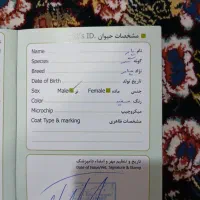 مشخصات حیوان .ID
Name نام
Species گونه
Breed نژاد
Date of Birth تاریخ تولد
Sex Male نر Female ماده جنس
Color رنگ
Microchip میکروچیپ
Coat Type & marking مشخصات ظاهری
تاریخ و تنظیم مهر و امضاء دامپزشک
Date of Issue/Vet. Signature & Stamp